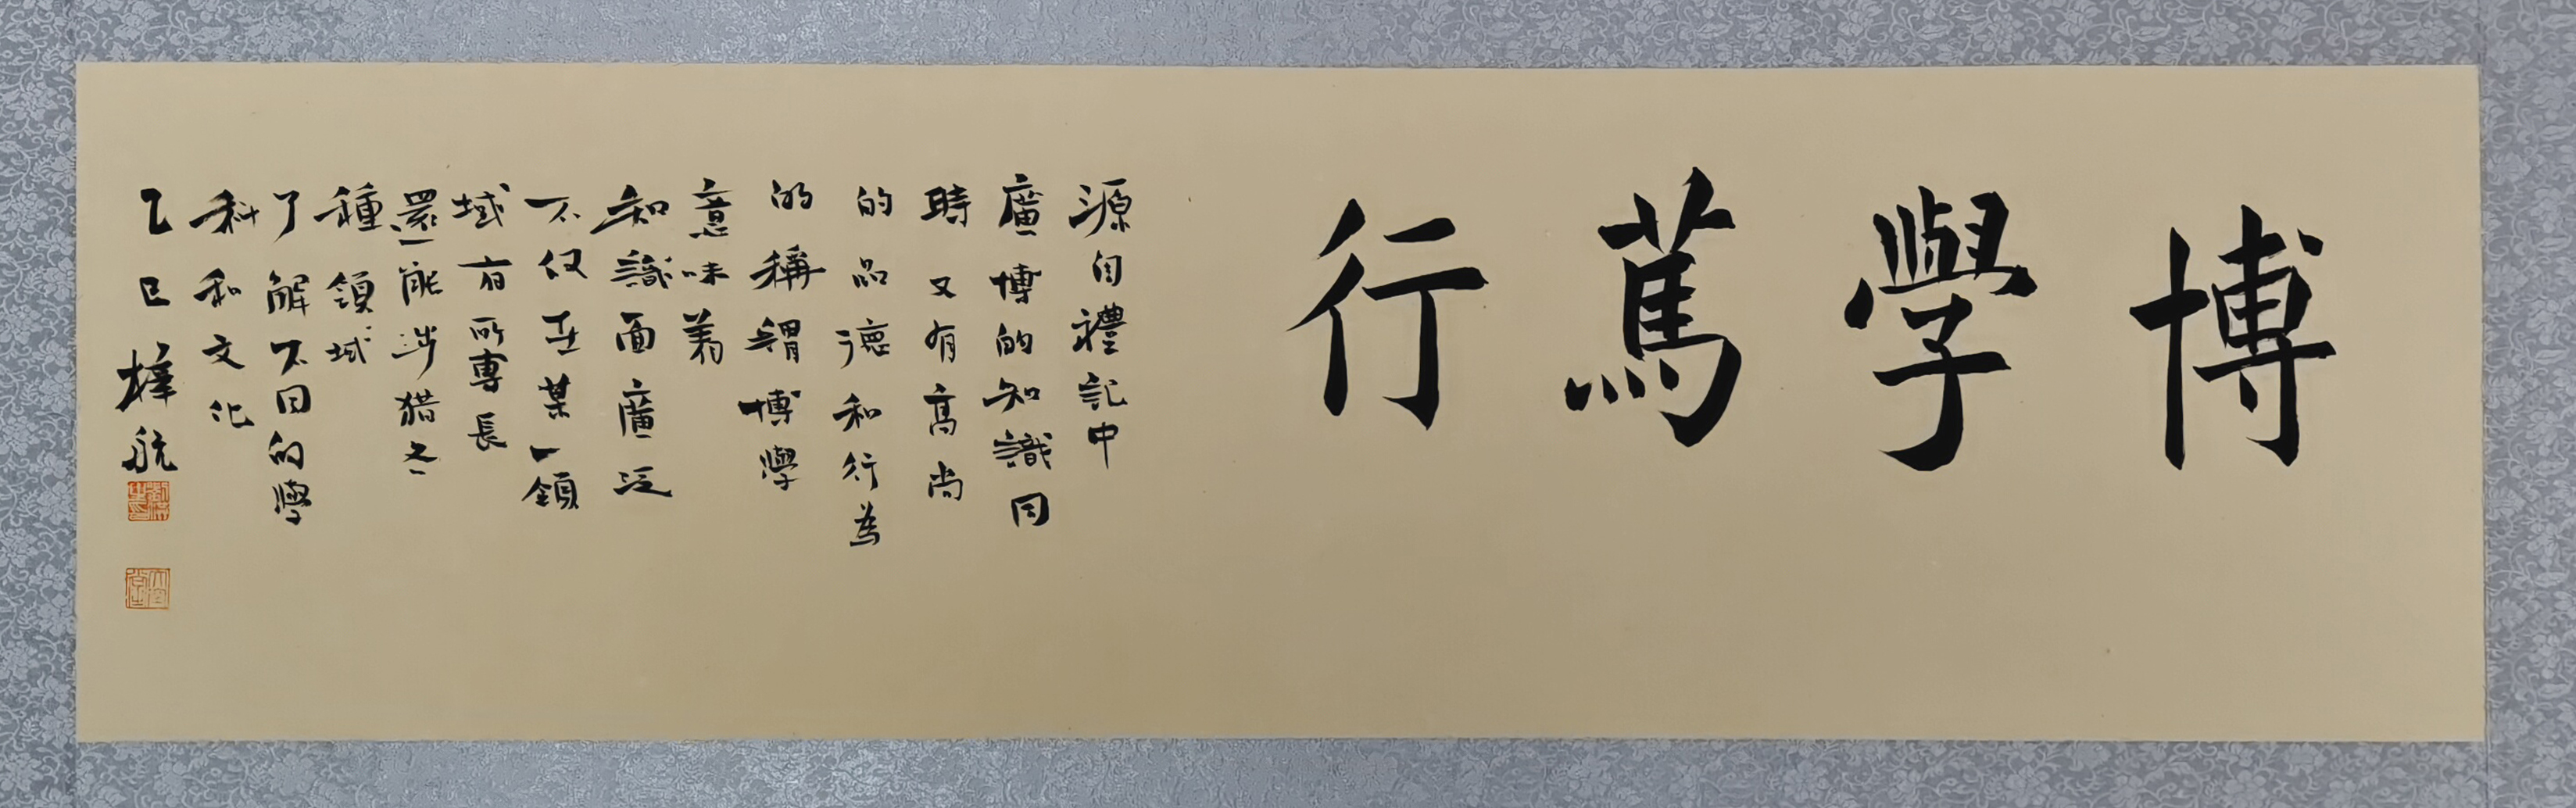 博學篤行
源自禮記中
廣博的知識同
時又有高尚
的品德和行為
的稱謂博學
意味着
知識面廣泛
不仅在某一領
域有所專長
還能涉猎各
種領域
了解不同的學
科和文化
乙巳 梓航